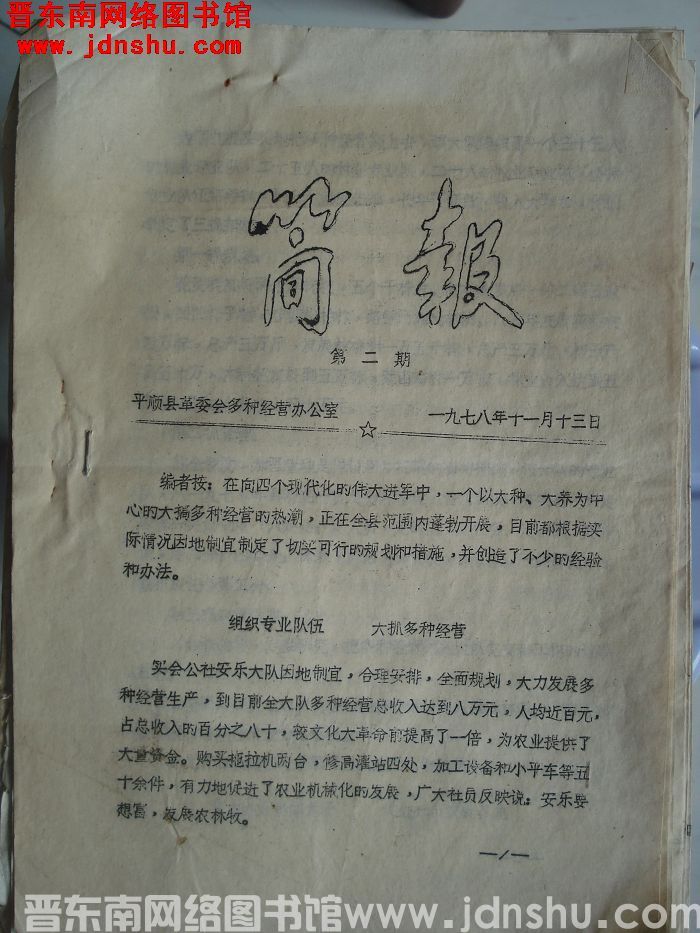 晋东南网络图书馆
www.jdnshu.com
简 報
第 二 期
平顺县革委会多种经营办公室 一九七八年十一月十三日
编者按：在向四个现代化的伟大进军中，一个以大种、大养为中
心的大搞多种经营的热潮，正在全县范围内蓬勃开展，目前都根据实
际情况因地制宜制定了切实可行的规划和措施，并创造了不少的经验
和办法。
组织专业队伍 大抓多种经营
实会公社安乐大队因地制宜，合理安排，全面规划，大力发展多
种经营生产，到目前全大队多种经营总收入达到八万元，人均近百元，
占总收入的百分之八十，较文化大革命前提高了一倍，为农业提供了
大量资金。购买拖拉机两台，修高灌站四处，加工设备和小平车等五
十余件，有力地促进了农业机械化的发展，广大社员反映说：安乐要
想富，发展农林牧。
—1—
晋东南网络图书馆www.jdnshu.com